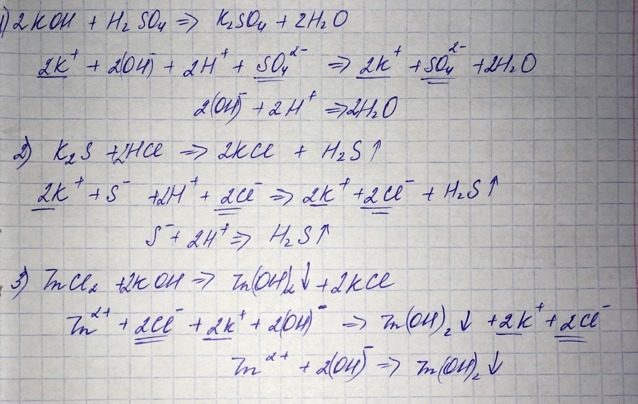 1) 2KOH + H₂SO₄ ⇒ K₂SO₄ + 2H₂O
2K⁺ + 2(OH)⁻ + 2H⁺ + SO₄²⁻ ⇒ 2K⁺ + SO₄²⁻ + 2H₂O
2(OH)⁻ + 2H⁺ ⇒ 2H₂O
2) K₂S + 2HCl ⇒ 2KCl + H₂S↑
2K⁺ + S⁻ + 2H⁺ + 2Cl⁻ ⇒ 2K⁺ + 2Cl⁻ + H₂S↑
S⁻ + 2H⁺ ⇒ H₂S↑
3) ZnCl₂ + 2KOH ⇒ Zn(OH)₂↓ + 2KCl
Zn²⁺ + 2Cl⁻ + 2K⁺ + 2(OH)⁻ ⇒ Zn(OH)₂↓ + 2K⁺ + 2Cl⁻
Zn²⁺ + 2(OH)⁻ ⇒ Zn(OH)₂↓